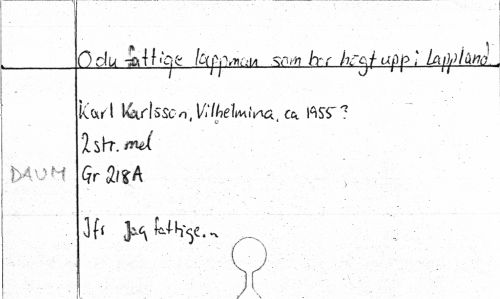 O du fattige lappman som bor högt upp i Lappland
Karl Karlsson, Vilhelmina, ca 1955?
2 str. mel
DAUM Gr 218A
Jfr Jag fattige...